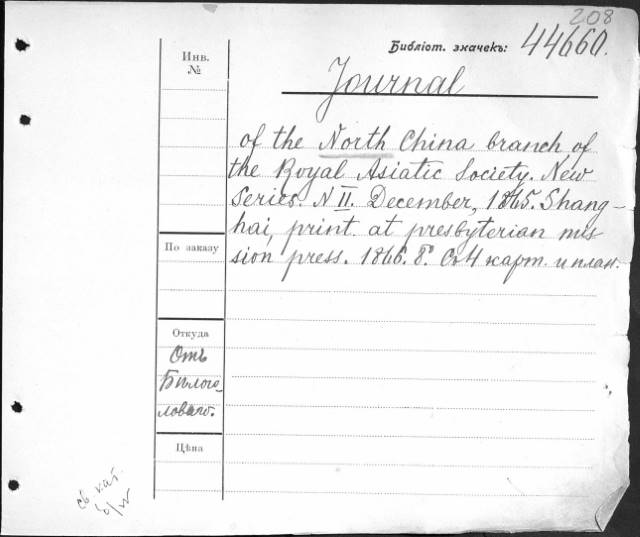 208
Библіот. значекъ: 44660.
Инв.
№
Journal
of the North China branch of
the Royal Asiatic Society. New
Series. N II. December, 1865. Shang-
hai, print. at presbyterian mis
sion press. 1866. 8º. Съ 4 карт. и план.
По заказу
Откуда
Отъ
Бѣлого-
ловаго.
Цѣна